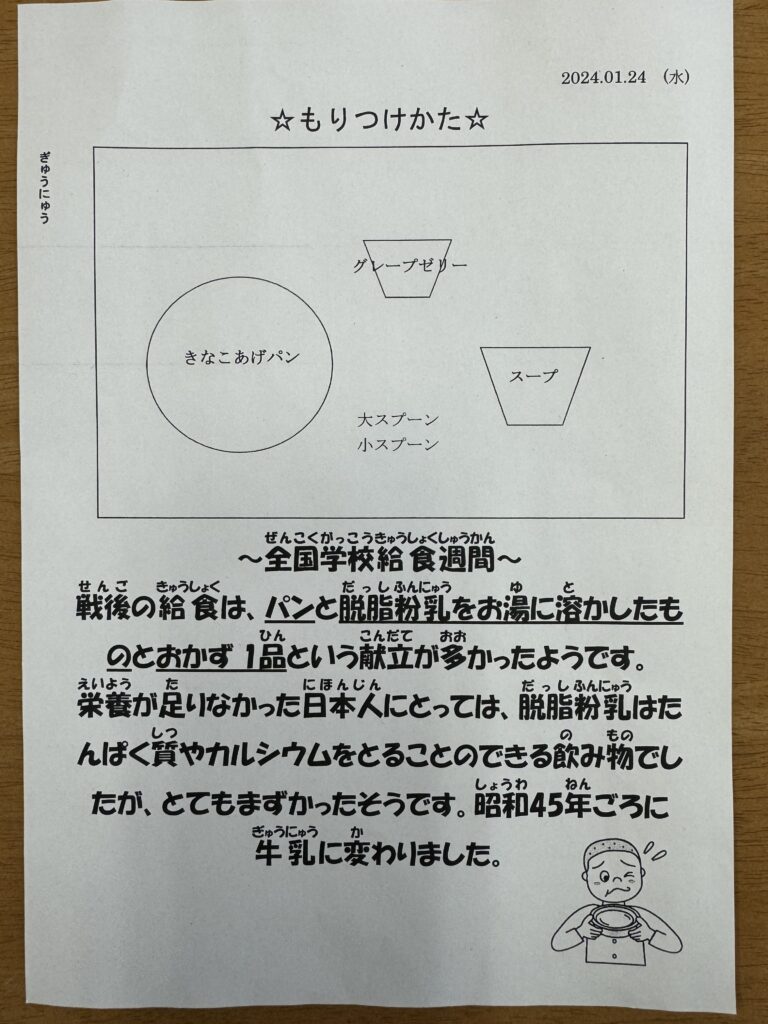 2024.01.24 (水)
☆もりつけかた☆
ぎゅうにゅう
グレープゼリー
きなこあげパン
スープ
大スプーン
小スプーン
ぜんこくがっこうきゅうしょくしゅうかん
～全国学校給食週間～
せんご きゅうしょく だっしふんにゅう ゆ と
戦後の給食は、パンと脱脂粉乳をお湯に溶かしたも
ひん こんだて おお
のとおかず1品という献立が多かったようです。
えいよう た にほんじん だっしふんにゅう
栄養が足りなかった日本人にとっては、脱脂粉乳はた
しつ の もの
んぱく質やカルシウムをとることのできる飲み物でし
しょうわ ねん
たが、とてもまずかったそうです。昭和45年ごろに
ぎゅうにゅう か
牛乳に変わりました。